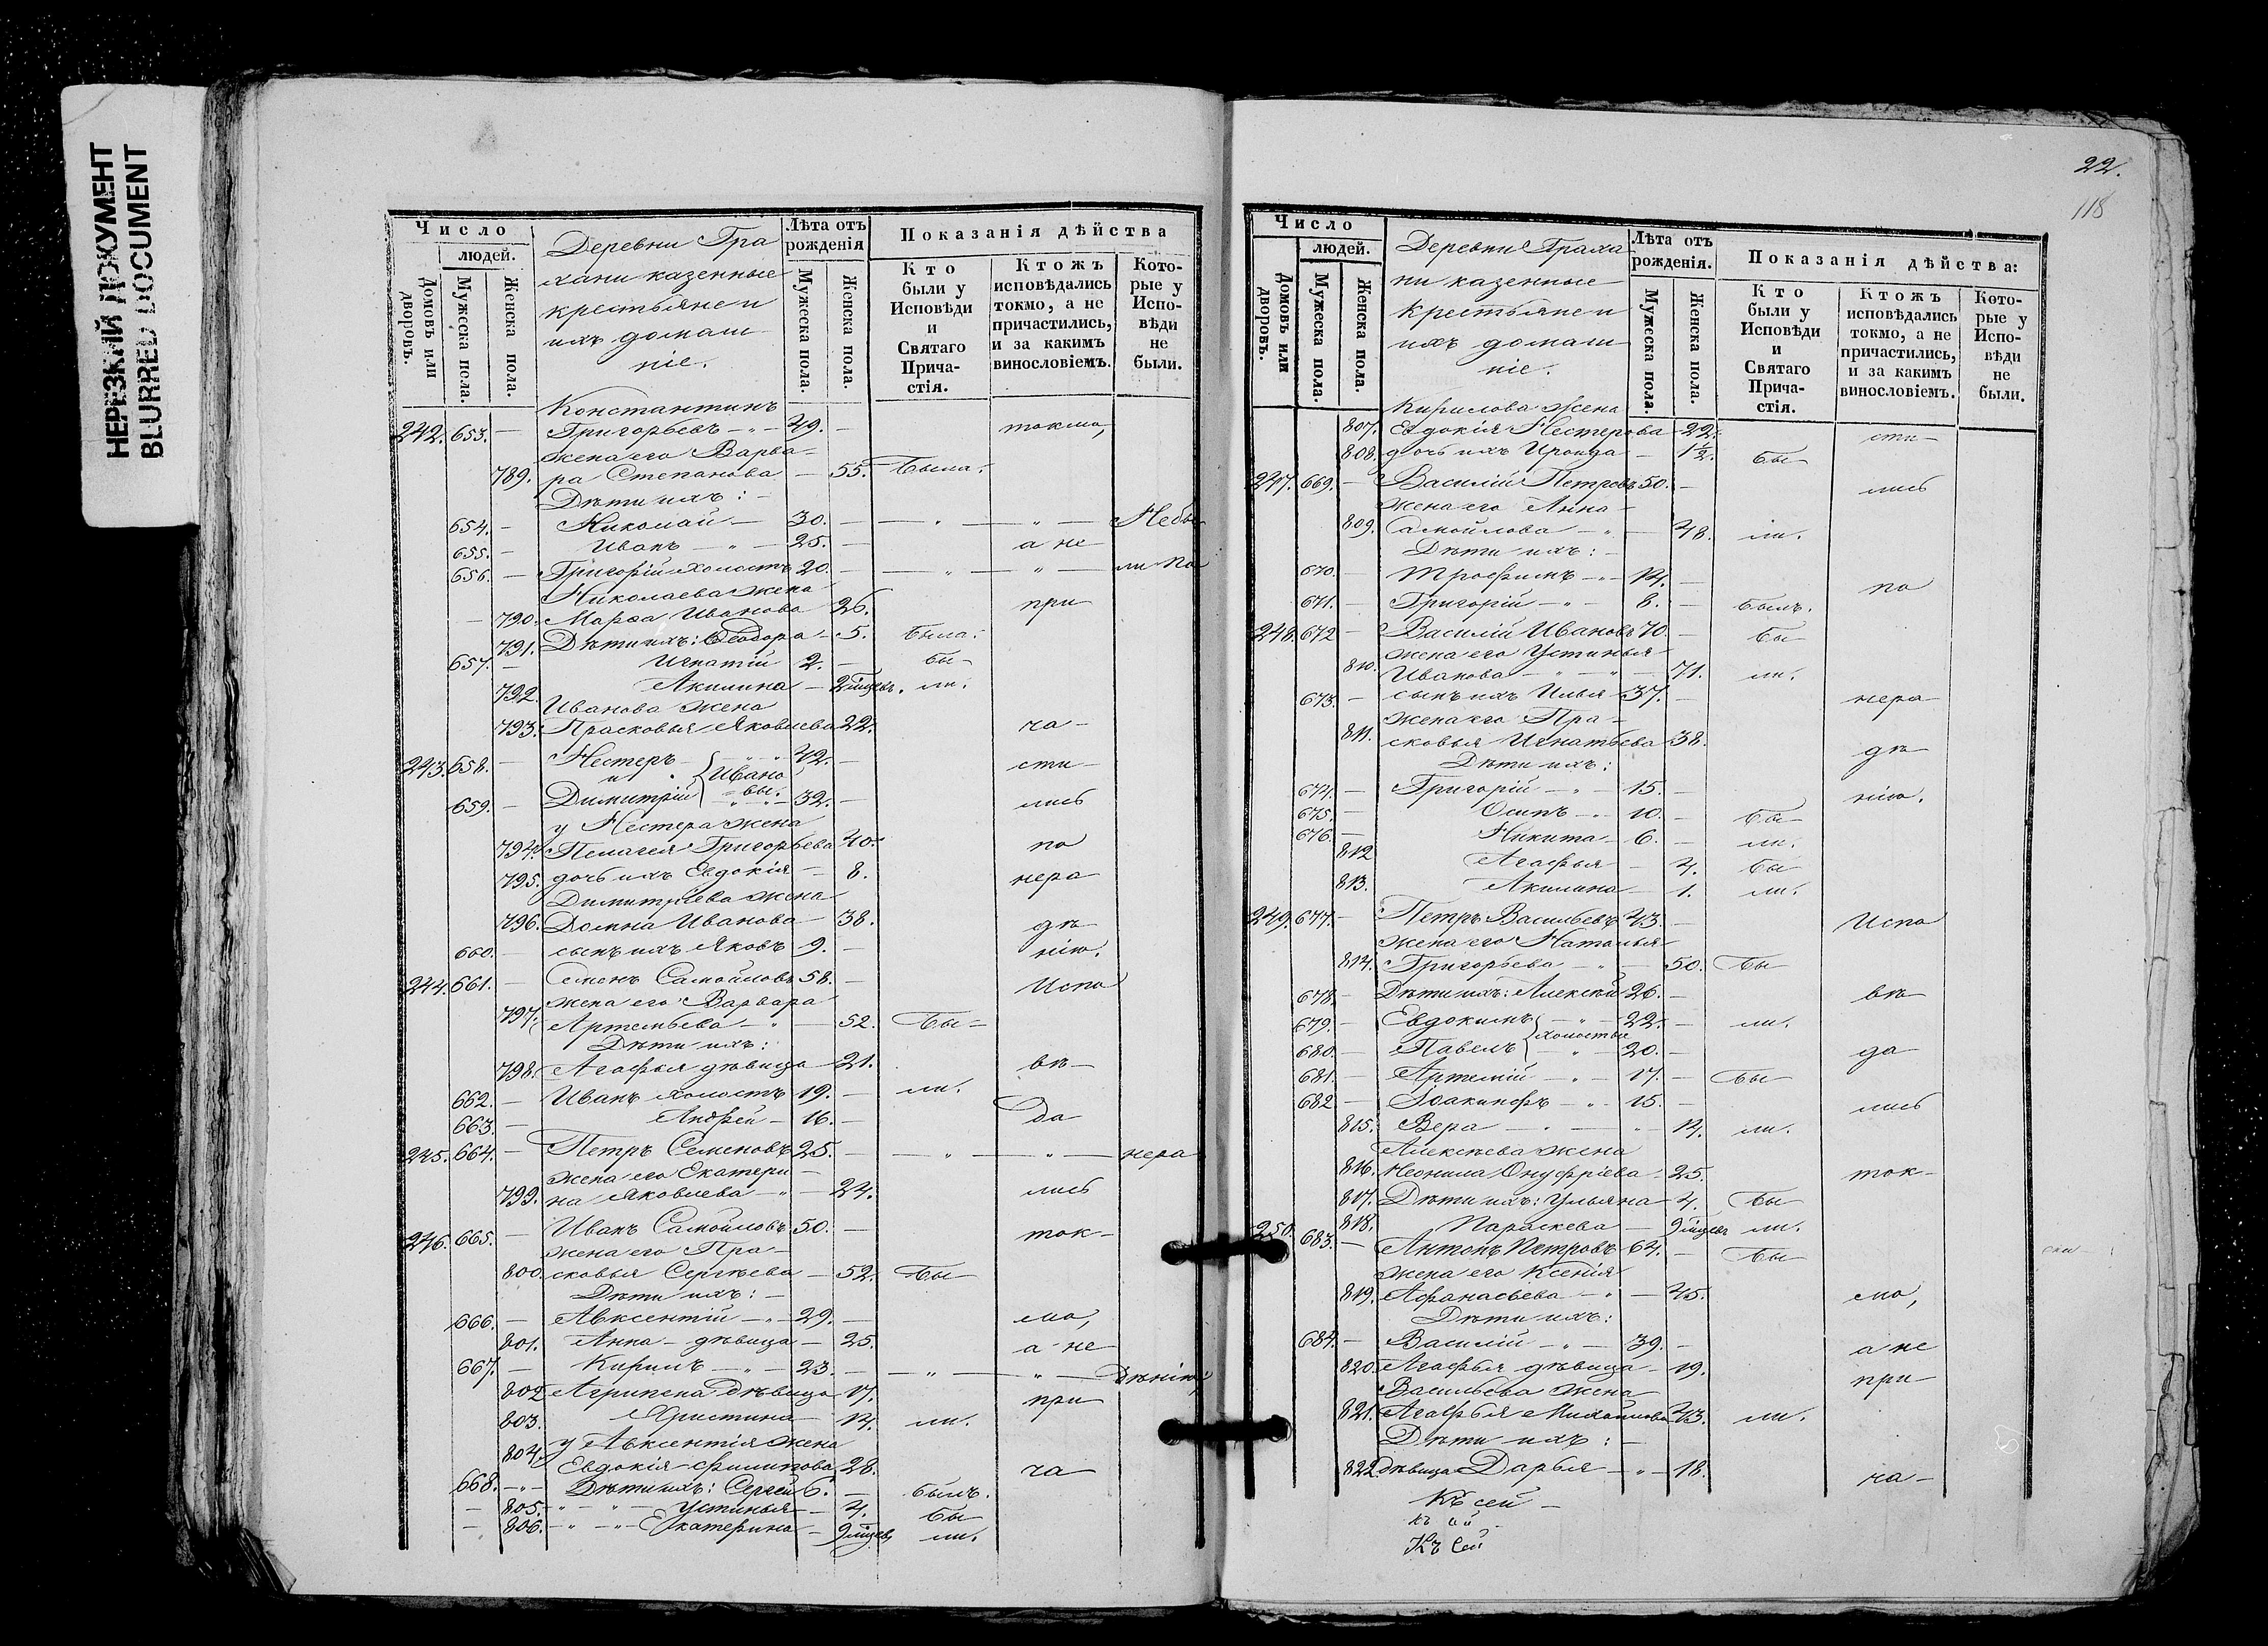 НЕРЕЗКИЙ ДОКУМЕНТ
BLURRED DOCUMENT
Число
людей.
Домовъ или дворовъ.
Мужеска пола.
Женска пола.
Деревни Гра
хани казенные
крестьяне и
ихъ домаш
ніе.
Лѣта отъ рожденія
Мужеска пола.
Женска пола.
Показанія дѣйства
Кто были у Исповѣди и Святаго Причастія.
Ктожъ исповѣдались токмо, а не причастились, и за какимъ винословіемъ.
Которые у Исповѣди не были.
Константинъ
242. 653. — Григорьевъ — 49. — токмо,
жена его Варва-
789. ра Степанова — 55. была.
Дѣти ихъ: —
654. — Николай — 30. — Небы
655. — Иванъ — 25. — а не
656. — Григорій холостъ 20. — ли по
Николаева жена
790. Марѳа Иванова 26. при
791. Дѣти ихъ: Ѳеодора — 5. была.
657. — Игнатій 2. — бы-
792. Акилина — 2 мцев. ли.
Иванова жена
793. Прасковья Яковлева 22. ча-
243. 658. — Нестеръ — 42. — сти-
и Ивано
659. — Димитрій вы. 32. — лись
у Нестера жена
794. Пелагея Григорьева 40. по
795. дочь ихъ Евдокія — 8. нера
Димитріева жена
796. Домна Иванова — 38. дѣ
660. — сынъ ихъ Яковъ 9. — нію.
244. 661. — Семенъ Самойловъ 58. — Испо
жена его Варвара
797. Артемьева — 52. бы-
Дѣти ихъ:
798. Агафья дѣвица — 21. вѣ-
662. — Иванъ холостъ 19. — ли.
663. — Андрей — 16. — да
245. 664. — Петръ Семеновъ 25. — нера
жена его Екатери —
799. на Яковлева — 24. лись
246. 665. — Иванъ Самойловъ 50. — ток-
жена его Пра-
800. сковья Сергѣева — 52. бы-
Дѣти ихъ: —
666. — Авксентій — 29. — мо,
801. Анна — дѣвица — 25. а не
667. — Кирилъ — 23. — дѣнію,
802. Агрипена дѣвица 17. при
803. Христина — 14. ли.
у Авксентія жена
804. Евдокія Филипова 28. ча-
668. Дѣти ихъ: Сергей 6. — былъ.
805. Устинья — 4. бы
806. Екатерина — 9 мцев ли.
22.
118
Число
людей.
Домовъ или дворовъ.
Мужеска пола.
Женска пола.
Деревни Граха
ни казенные
крестьяне и
ихъ домаш
ніе.
Лѣта отъ рожденія.
Мужеска пола.
Женска пола.
Показанія дѣйства:
Кто были у Исповѣди и Святаго Причастія.
Ктожъ исповѣдались токмо, а не причастились, и за какимъ винословіемъ.
Которые у Исповѣди не были.
Кирилова жена
807. Евдокія Нестерова 22. сти-
808. дочь ихъ Ироида — 1½. бы
247. 669. — Василій Петровъ 50. — лись
жена его Анна —
809. Самойлова — 48. ли.
Дѣти ихъ: —
670. — Трофимъ — 14. — по
671. — Григорій — 8. — былъ.
248. 672 — Василій Ивановъ 70. — бы
жена его Устинья
810. Иванова — 71. ли.
673. — сынъ ихъ Илья — 37. — нера-
жена его Пра-
811. сковья Игнатьева 38. дѣ
Дѣти ихъ:
674. — Григорій — 15. — нію.
675. — Осипъ — 10. — бы-
676. — Никита — 6. — ли.
812 Агафья — 4. бы
813. Акилина — 1. ли.
249. 677. — Петръ Васильевъ 43. — Испо
жена его Наталья
814. Григорьева — 50. бы
678. — Дѣти ихъ: Алексѣй 26. — вѣ
679. — Евдокимъ — 22. — ли.
холостые
680. — Павелъ — 20. — да
681. — Артемій — 17. — бы
682 — Іоакинфъ — 15. — лись
815. Вера — 14. ли.
Алексѣева жена
816. Неонила Онуфріева — 25. ток-
817. Дѣти ихъ: Ульяна — 4. бы
818. Параскева — 9 мцев ли.
250. 683. — Антонъ Петровъ 64. — бы
жена его Ксенія
819. Афанасьева — 45. мо,
Дѣти ихъ:
684. — Василій — 39. — а не
820. Агафья дѣвица — 19. при-
Васильева жена
821. Агафья Михайлова 43. ли.
Дѣти ихъ: —
822. дѣвица Дарья — 18. ча-
Къ сей —
Къ сей